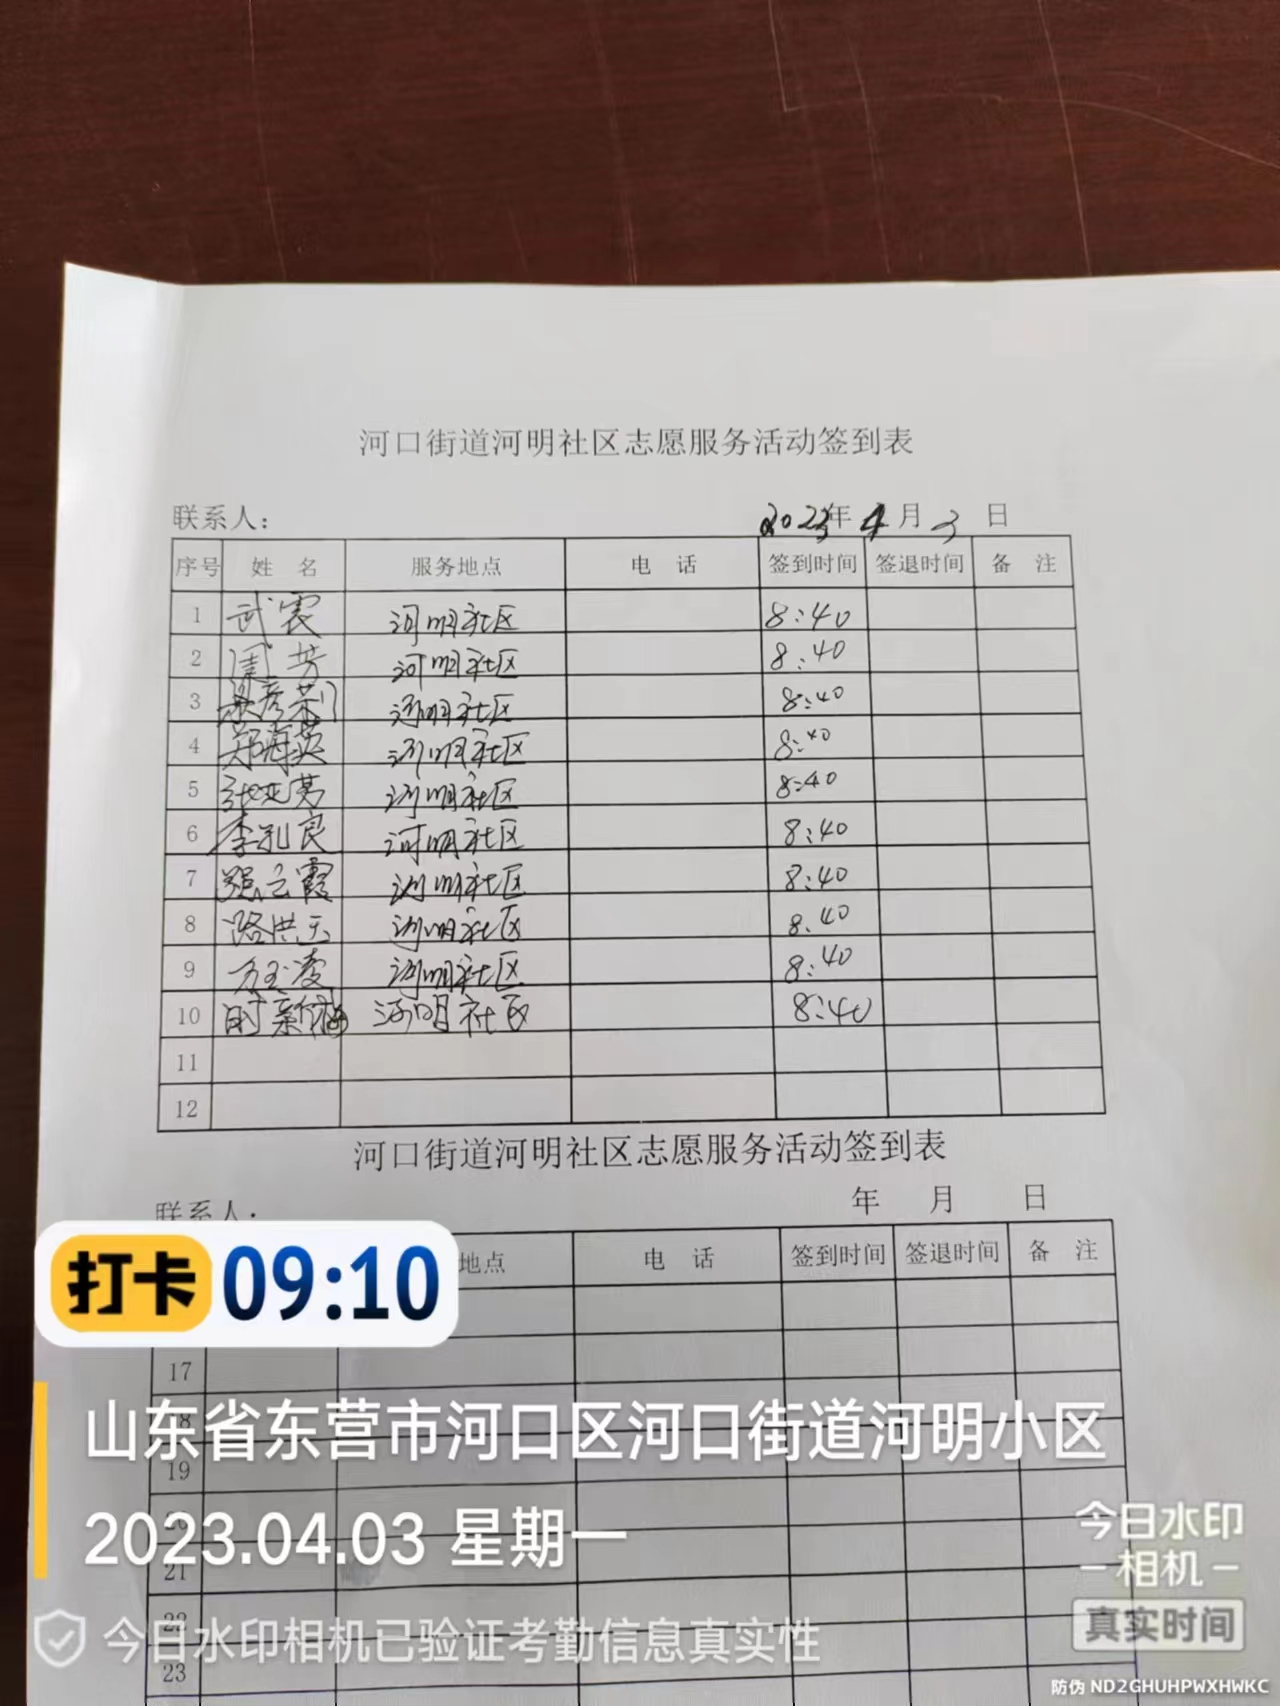 河口街道河明社区志愿服务活动签到表
联系人: 2023年 4月 3 日
序号 姓 名 服务地点 电 话 签到时间 签退时间 备 注
1 武震 河明社区 8:40
2 周芳 河明社区 8:40
3 河明社区 8:40
4 郑海英 河明社区 8:40
5 张亚男 河明社区 8:40
6 李孔良 河明社区 8:40
7 强云霞 河明社区 8:40
8 路洪玉 河明社区 8:40
9 方玉凌 河明社区 8:40
10 时新梅 河明社区 8:40
11
12
河口街道河明社区志愿服务活动签到表
联系人: 年 月 日
地点 电 话 签到时间 签退时间 备 注
打卡 09:10
17
18
山东省东营市河口区河口街道河明小区
19
20
2023.04.03 星期一
21
22
今日水印相机已验证考勤信息真实性
23
今日水印
相机
真实时间
防伪 ND2GHUHPWXHWKC